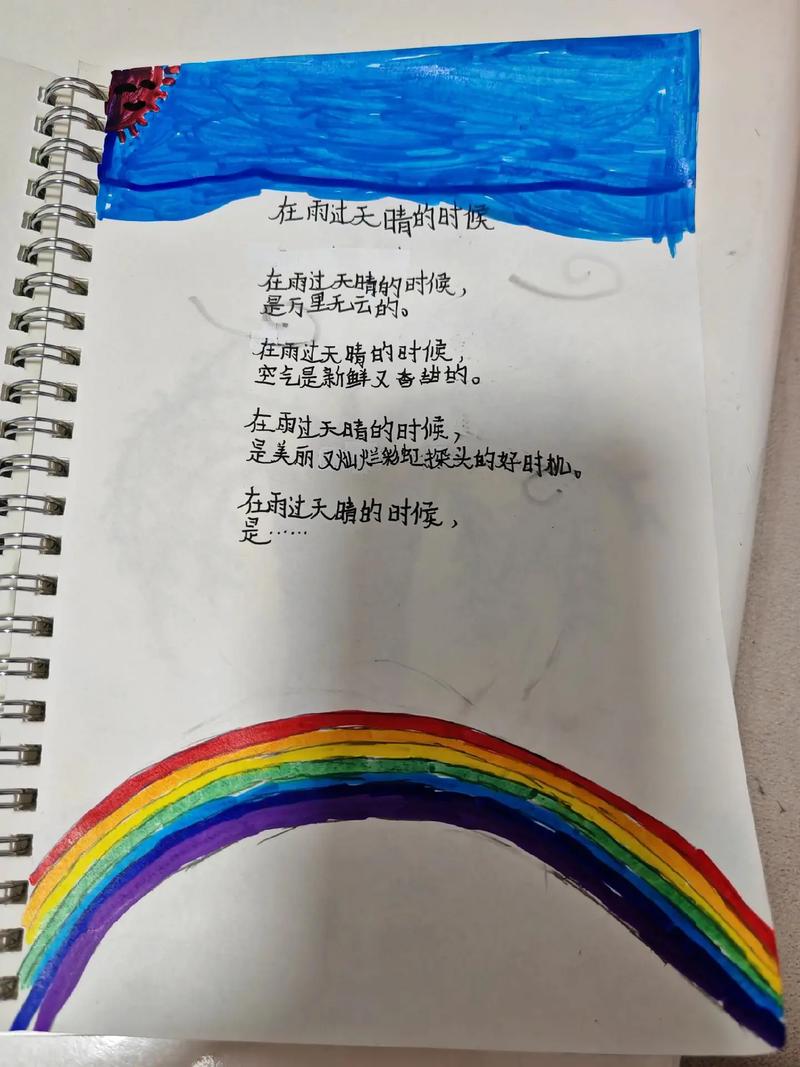 在雨过天晴的时候
在雨过天晴的时候，
是万里无云的。
在雨过天晴的时候，
空气是新鲜又香甜的。
在雨过天晴的时候，
是美丽又灿烂彩虹探头的好时机。
在雨过天晴的时候，
是……